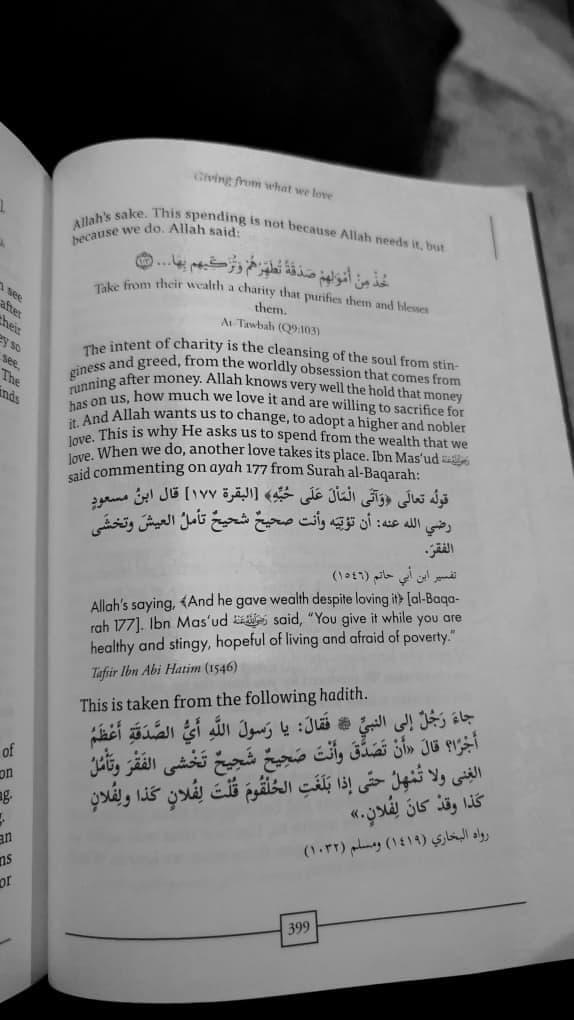 Giving from what we love
Allah's sake. This spending is not because Allah needs it, but
because we do. Allah said:
خُذْ مِنْ أَمْوَالِهِمْ صَدَقَةً تُطَهِّرُهُمْ وَتُزَكِّيهِم بِهَا... ١٠٣
Take from their wealth a charity that purifies them and blesses
them.
At-Tawbah (Q9:103)
The intent of charity is the cleansing of the soul from stin-
giness and greed, from the worldly obsession that comes from
running after money. Allah knows very well the hold that money
has on us, how much we love it and are willing to sacrifice for
it. And Allah wants us to change, to adopt a higher and nobler
love. This is why He asks us to spend from the wealth that we
love. When we do, another love takes its place. Ibn Mas'ud
said commenting on ayah 177 from Surah al-Baqarah:
قولُه تعالَى ﴿وَآتَى الْمَالَ عَلَى حُبِّهِ﴾ [البقرة ١٧٧] قال ابنُ مسعودٍ
رضي الله عنه: أن تؤتِيَه وأنت صحيحٌ شحيحٌ تأملُ العيشَ وتخشَى
الفقرَ.
تفسير ابن أبي حاتم (١٥٤٦)
Allah's saying, ﴾And he gave wealth despite loving it﴿ [al-Baqa-
rah 177]. Ibn Mas'ud said, “You give it while you are
healthy and stingy, hopeful of living and afraid of poverty.”
Tafsir Ibn Abi Hatim (1546)
This is taken from the following hadith.
جاءَ رَجُلٌ إلى النبيِّ ﷺ فَقالَ: يا رَسولَ اللَّهِ أَيُّ الصَّدَقَةِ أَعْظَمُ
أَجْرًا؟ قالَ «أَنْ تَصَدَّقَ وأَنْتَ صَحِيحٌ شَحِيحٌ تَخْشى الفَقْرَ وتَأْمُلُ
الغِنى ولا تُمْهِلُ حتّى إذا بَلَغَتِ الحُلْقُومَ قُلْتَ لِفُلانٍ كَذا ولِفُلانٍ
كَذا وقدْ كانَ لِفُلانٍ.»
رواه البخاري (١٤١٩) ومسلم (١٠٣٢)
399
see
after
their
ey so
see,
The
inds
of
on
ng.
an
ns
or